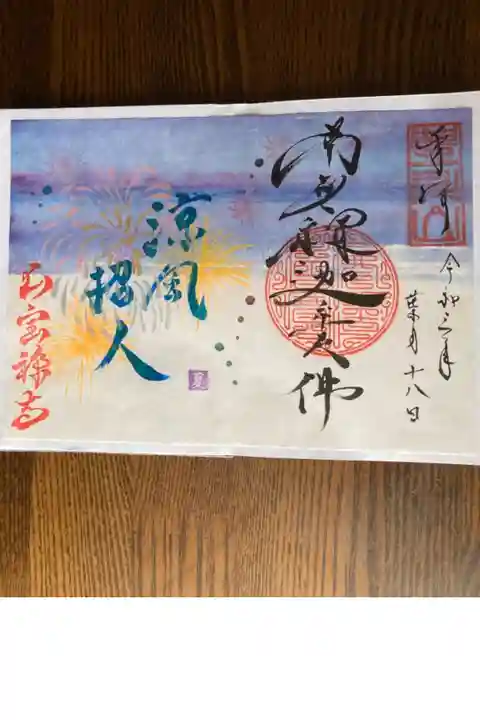 奉拝
令和三年
葉月十八日
南無釋迦牟尼佛
涼風
招人
夏
宝禅寺